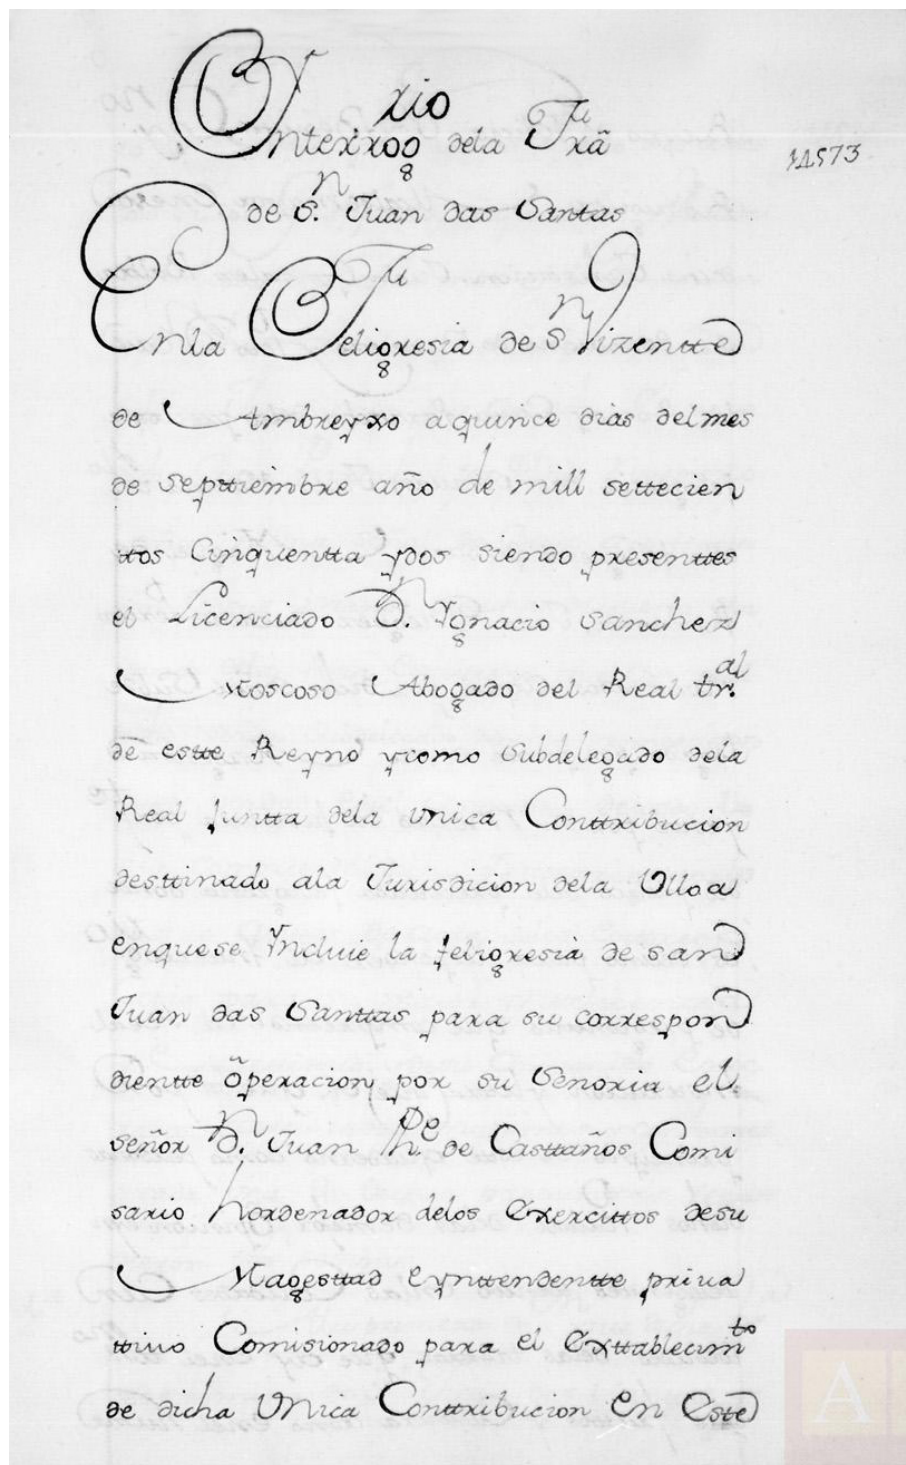 Ynterrog.rio dela Fra
11573
de S.n Juan das Santas
Enla Feligresia de Sn Vizentte
de Ambreyxo a quince dias del mes
de septtiembre año de mill settecien
ttos Cinquentta ydos siendo presenttes
el Licenciado D.n Ygnacio Sanchez
Moscoso Abogado del Real tr.al
de estte Reyno ycomo Subdelegado dela
Real Juntta dela Unica Conttribucion
desttinado ala Jurisdicion dela Ulloa
enquese Yncluie la feligresia de san
Juan das Santtas para su correspon
dientte operacion por su Senoria el
señor D.n Juan Ph.e de Casttaños Comi
sario hordenador delos Exercittos desu
Magesttad eynttendentte priua
ttiuo Comisionado para el Exttablecimto
de dicha Unica Conttribucion En Este
A